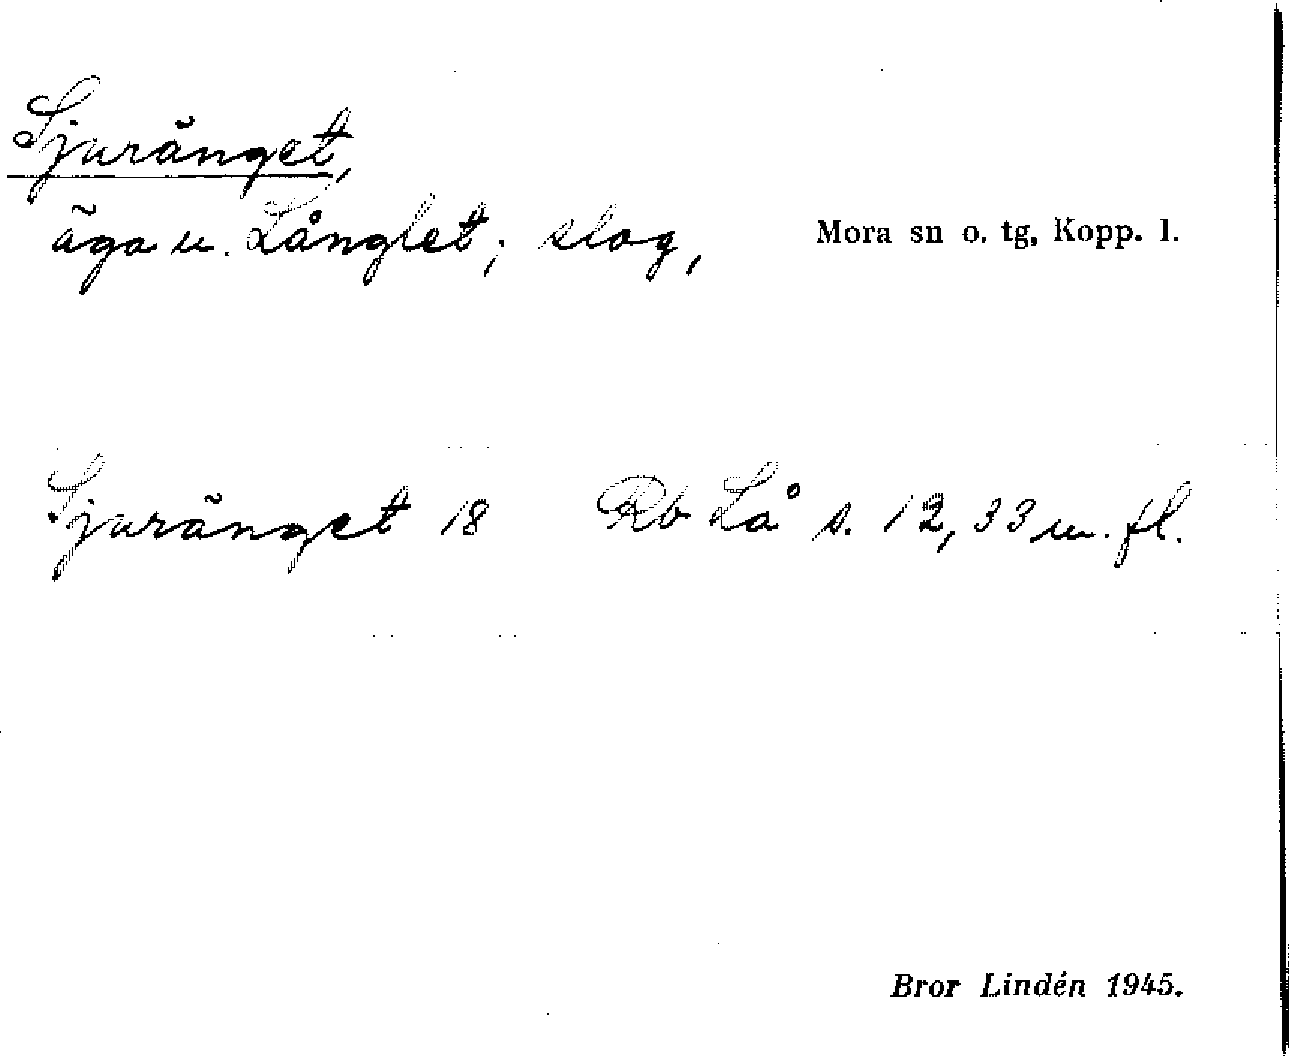 Sjuränget,
äga u. Långlet; slog, Mora sn o. tg, Kopp. l.
Sjuränget 18 Rb Lå s. 12, 33 m. fl.
Bror Lindén 1945.